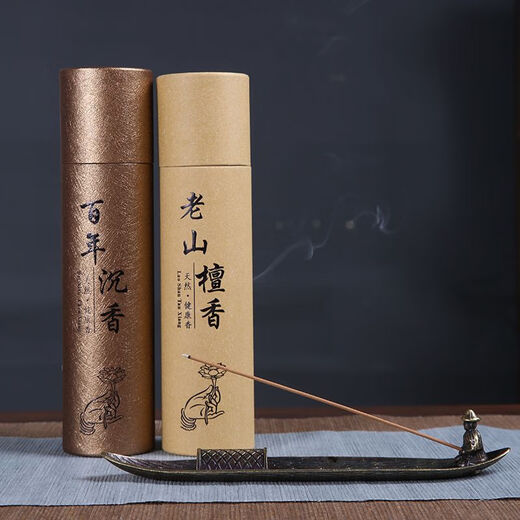 百年沉香
老山檀香
天然·健康香
Lao Shan Tan Xiang